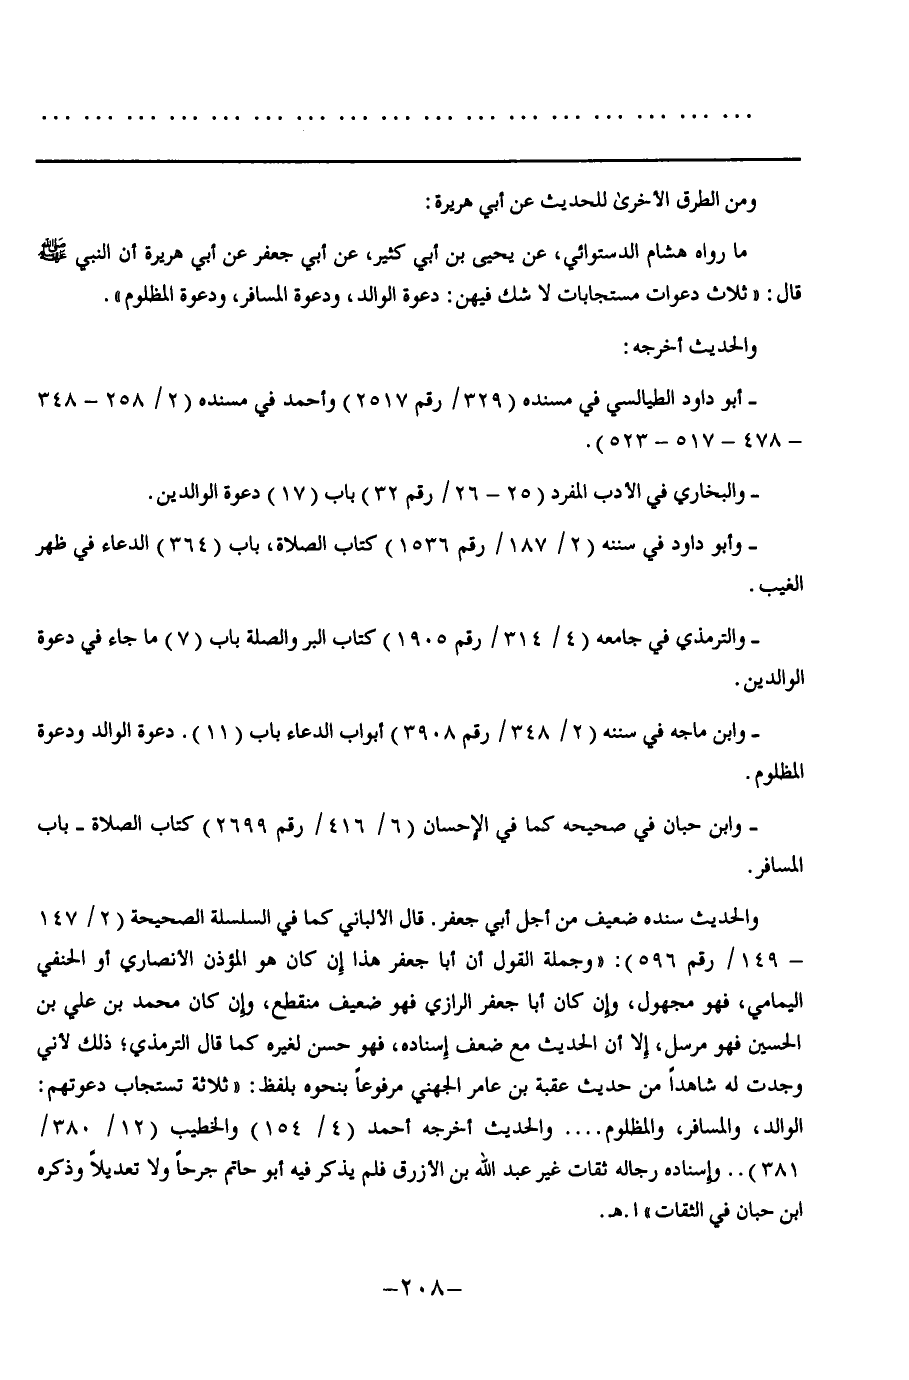 ... ... ... ... ... ... ... ... ... ... ... ... ... ... ... ... ...
ومن الطرق الأخرىٰ للحديث عن أبي هريرة:
ما رواه هشام الدستوائي، عن يحيى بن أبي كثير، عن أبي جعفر عن أبي هريرة أن النبي ﷺ
قال: «ثلاث دعوات مستجابات لا شك فيهن: دعوة الوالد، ودعوة المسافر، ودعوة المظلوم».
والحديث أخرجه:
ـ أبو داود الطيالسي في مسنده (٣٢٩/ رقم ٢٥١٧) وأحمد في مسنده (٢/ ٢٥٨ – ٣٤٨
– ٤٧٨ – ٥١٧ – ٥٢٣).
ـ والبخاري في الأدب المفرد (٢٥ – ٢٦/ رقم ٣٢) باب (١٧) دعوة الوالدين.
ـ وأبو داود في سننه (٢/ ١٨٧/ رقم ١٥٣٦) كتاب الصلاة، باب (٣٦٤) الدعاء في ظهر
الغيب.
ـ والترمذي في جامعه (٤/ ٣١٤/ رقم ١٩٠٥) كتاب البر والصلة باب (٧) ما جاء في دعوة
الوالدين.
ـ وابن ماجه في سننه (٢/ ٣٤٨/ رقم ٣٩٠٨) أبواب الدعاء باب (١١). دعوة الوالد ودعوة
المظلوم.
ـ وابن حبان في صحيحه كما في الإحسان (٦/ ٤١٦/ رقم ٢٦٩٩) كتاب الصلاة ـ باب
المسافر.
والحديث سنده ضعيف من أجل أبي جعفر. قال الألباني كما في السلسلة الصحيحة (٢/ ١٤٧
– ١٤٩/ رقم ٥٩٦): «وجملة القول أن أبا جعفر هذا إن كان هو المؤذن الأنصاري أو الحنفي
اليمامي، فهو مجهول، وإن كان أبا جعفر الرازي فهو ضعيف منقطع، وإن كان محمد بن علي بن
الحسين فهو مرسل، إلا أن الحديث مع ضعف إسناده، فهو حسن لغيره كما قال الترمذي؛ ذلك لأني
وجدت له شاهداً من حديث عقبة بن عامر الجهني مرفوعاً بنحوه بلفظ: «ثلاثة تستجاب دعوتهم:
الوالد، والمسافر، والمظلوم.... والحديث أخرجه أحمد (٤/ ١٥٤) والخطيب (١٢/ ٣٨٠/
٣٨١).. وإسناده رجاله ثقات غير عبد الله بن الأزرق فلم يذكر فيه أبو حاتم جرحاً ولا تعديلاً وذكره
ابن حبان في الثقات» ا.هـ.
–٢٠٨–